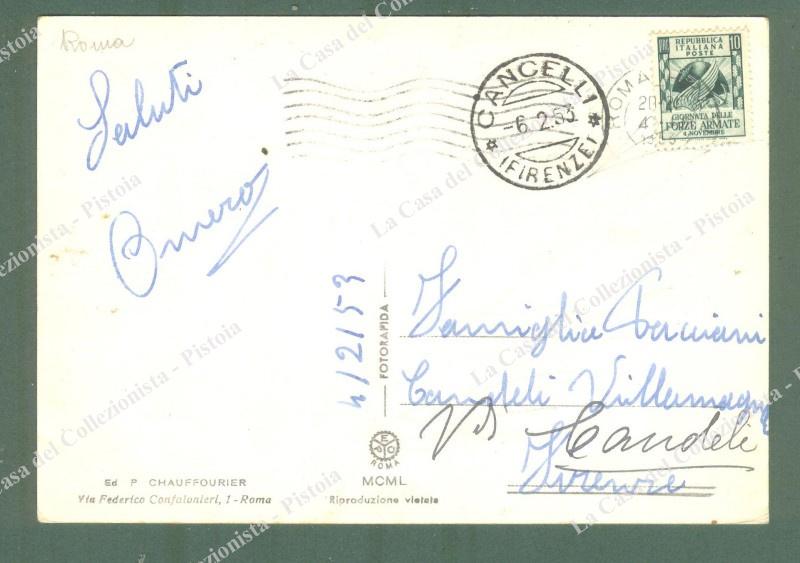 Roma
Saluti
Omero
4/2/53
FOTORAPIDA
ROMA
MCML
Riproduzione vietata
Ed P CHAUFFOURIER
Via Federico Confalonieri, 1 - Roma
CANCELLI
-6.2.53
(FIRENZE)
ROMA
REPUBBLICA
ITALIANA
POSTE
10
GIORNATA DELLE
FORZE ARMATE
4 NOVEMBRE
Famiglia
Candeli Villamagna
Candeli
Firenze
La Casa del Collezionista - Pistoia